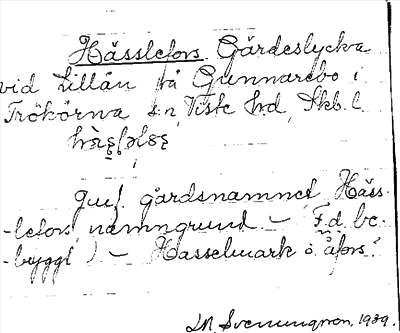 Hässlefors Gärdeslycka
vid Lillån på Gunnarebo i
Trökörna sn, Viste hd, Skb. l.
Jmf. gårdsnamnet Häss-
-lefors, namngrund - F.d. be-
-byggt) - Hasselmark o åfors?
Svenungson. 1939.